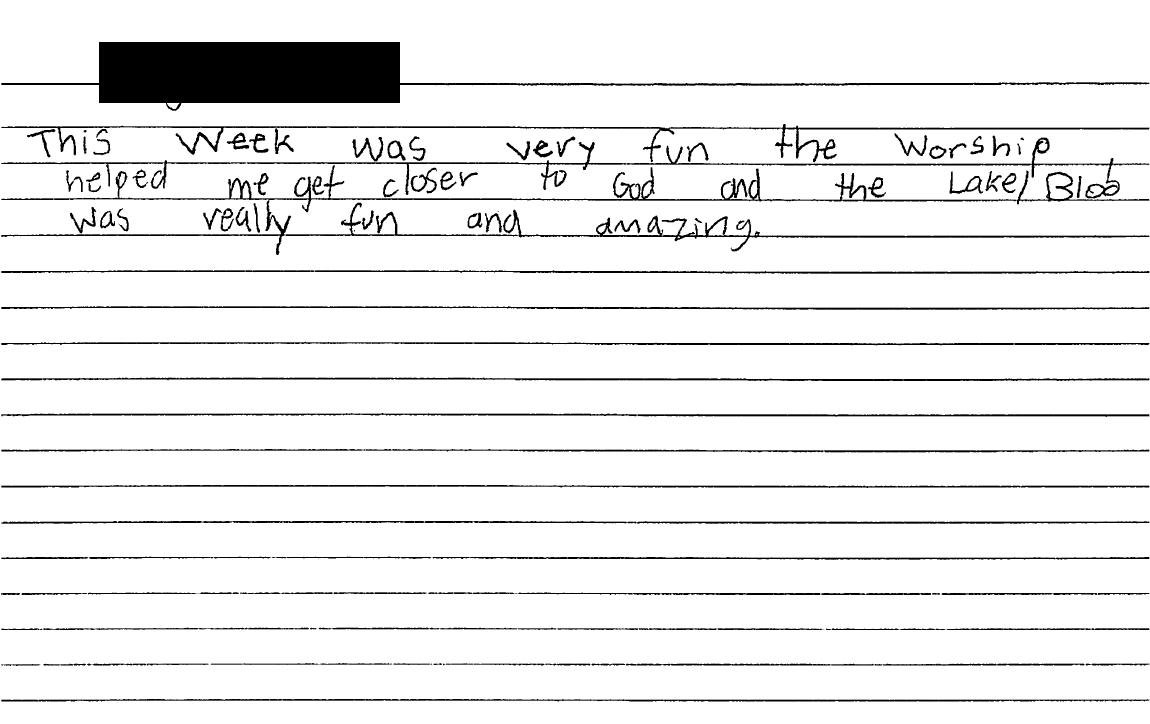 This Week was very fun the Worship
helped me get closer to God and the Lake/Blob
was really fun and amazing.